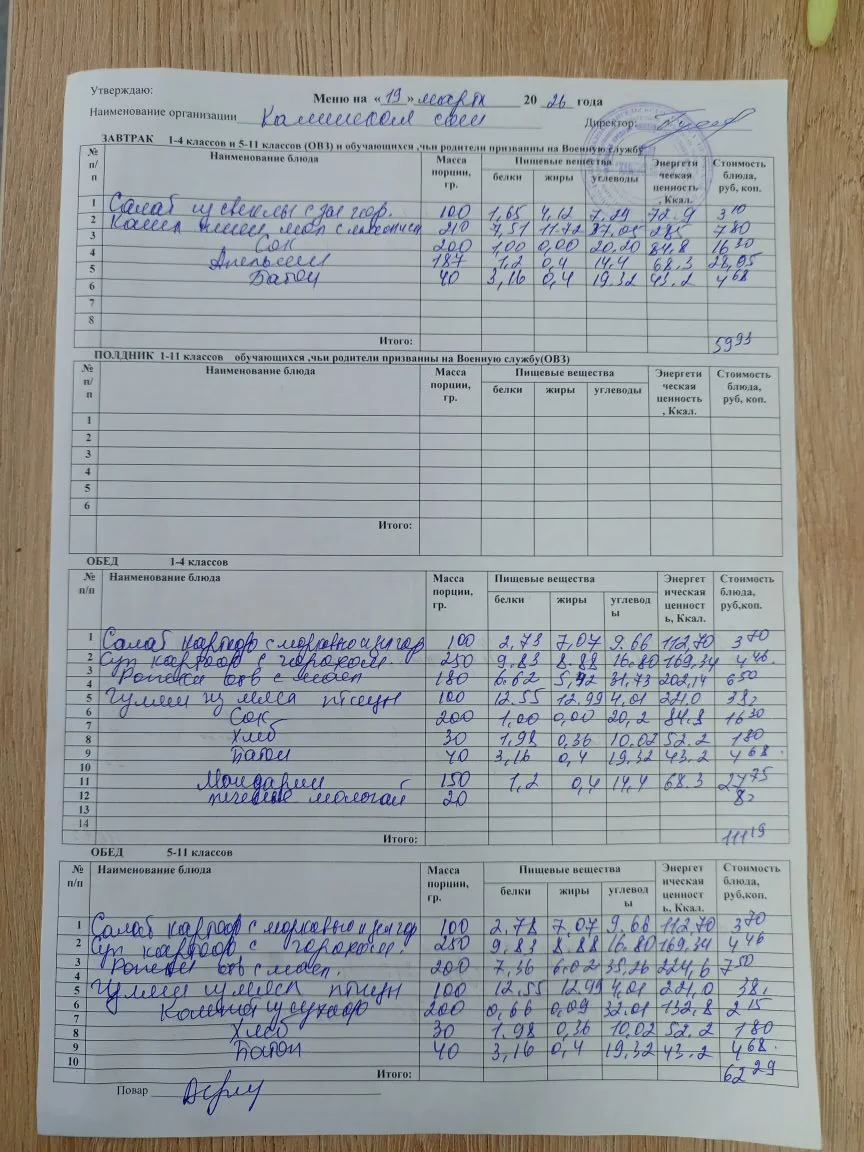 Утверждаю:
Меню на « 19 » марта 20 26 года
Наименование организации Каминская сош Директор:
ЗАВТРАК 1-4 классов и 5-11 классов (ОВЗ) и обучающихся ,чьи родители призванны на Военную службу
№ п/п Наименование блюда Масса порции, гр. Пищевые вещества Энергетическая ценность, Ккал. Стоимость блюда, руб, коп.
белки жиры углеводы
1 Салат из свеклы с зел гор. 100 1,65 4,12 7,29 72.9 3 10
2 Каша пшен мол с маслом 210 7,51 11.72 37.05 285 7 80
3 Сок 200 1,00 0,00 20,20 84,8 16 30
4 Апельсин 187 1,2 0,4 14,4 68.3 28,05
5 Батон 40 3,16 0,4 19.32 43.2 4 68
6
7
8
Итого: 59 93
ПОЛДНИК 1-11 классов обучающихся ,чьи родители призванны на Военную службу(ОВЗ)
№ п/п Наименование блюда Масса порции, гр. Пищевые вещества Энергетическая ценность, Ккал. Стоимость блюда, руб, коп.
белки жиры углеводы
1
2
3
4
5
6
Итого:
ОБЕД 1-4 классов
№ п/п Наименование блюда Масса порции, гр. Пищевые вещества Энергетическая ценность, Ккал. Стоимость блюда, руб,коп.
белки жиры углеводы
1 Салат картоф с морковью и зел гор 100 2,73 7,07 9.66 112,70 3 70
2 Суп картоф с горохом. 250 9.83 8.88 16.80 169,34 4 46.
3
4 Рожки отв с масл 180 6.62 5,42 31,73 202,14 6 50
5 Гуляш из мяса птицы 100 12.55 12,99 4,01 221,0 38,
6
7 Сок 200 1,00 0,00 20,2 84.8 16 30
8 Хлеб 30 1,98 0,36 10.02 52.2 1 80
9 Батон 40 3,16 0,4 19,32 43.2 4 68.
10
11 Мандарин 150 1,2 0,4 14,4 68.3 27 75
12 печенье 20 8,
13
14
Итого: 111 19
ОБЕД 5-11 классов
№ п/п Наименование блюда Масса порции, гр. Пищевые вещества Энергетическая ценность, Ккал. Стоимость блюда, руб,коп.
белки жиры углеводы
1 Салат картоф с морковью и зел гор 100 2.78 7,07 9.66 112,70 3 70
2 Суп картоф с горохом. 250 9.83 8.88 16.80 169,34 4 46
3
4 Рожки отв с масл. 200 7,36 6.02 35,26 224,6 7 50
5 Гуляш из мяса птицы 100 12.55 12.99 4,01 221,0 38,
6
7 Компот из сухоф 200 0,66 0,09 32.01 132,8 2 15
8 Хлеб 30 1.98 0,36 10,02 52.2 1 80
9 Батон 40 3,16 0,4 19,32 43.2 4 68.
10
Итого: 62 29
Повар